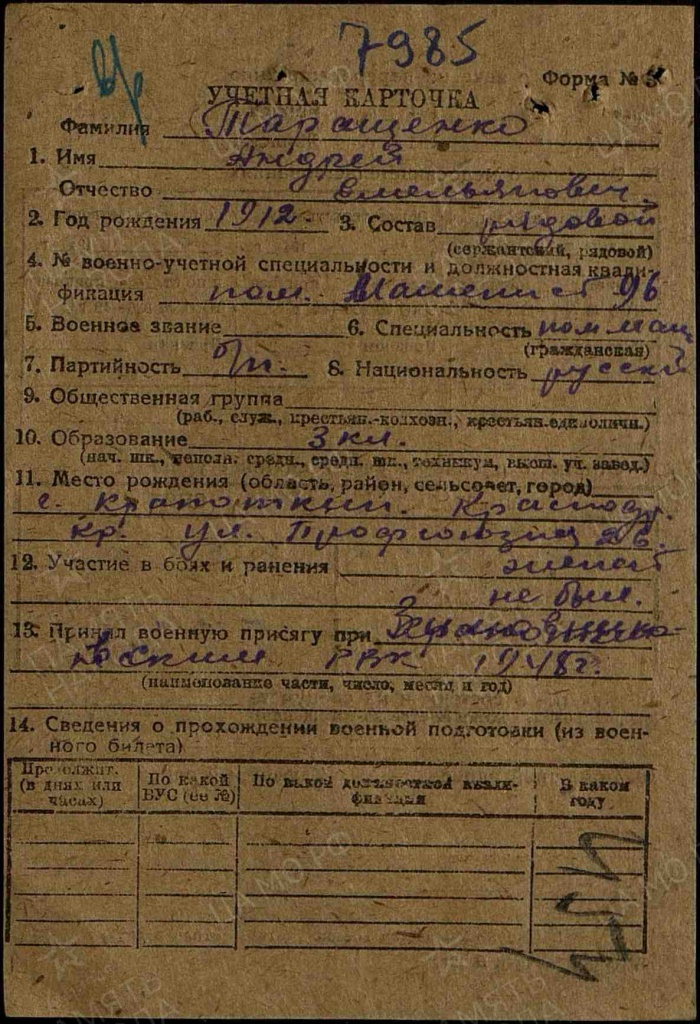 7985
Форма №
УЧЕТНАЯ КАРТОЧКА
Фамилия Таращенко
1. Имя Андрей
Отчество Емельянович
2. Год рождения 1912. 3. Состав рядовой
(сержантский, рядовой)
4. № военно-учетной специальности и должностная квали-
фикация пом. Машенист 96
5. Военное звание 6. Специальность пом маш
(гражданская)
7. Партийность б/п. 8. Национальность русский
9. Общественная группа
(раб., служ., крестьян.-колхозн., крестьян.единоличн.)
10. Образование 3 кл.
(нач. шк., неполн. средн., средн. шк., техникум, высш. уч. завед.)
11. Место рождения (область, район, сельсовет, город)
г. Крапоткин. Краснодр.
кр. ул. Профсоюзна 26.
12. Участие в боях и ранения
не был.
13. Принял военную присягу при
РВК 1948г.
(наименование части, число, месяц и год)
14. Сведения о прохождении военной подготовки (из воен-
ного билета)
Продолжит. (в днях или часах)
По какой ВУС (ее №)
По какой должностной квали-фикации
В каком году